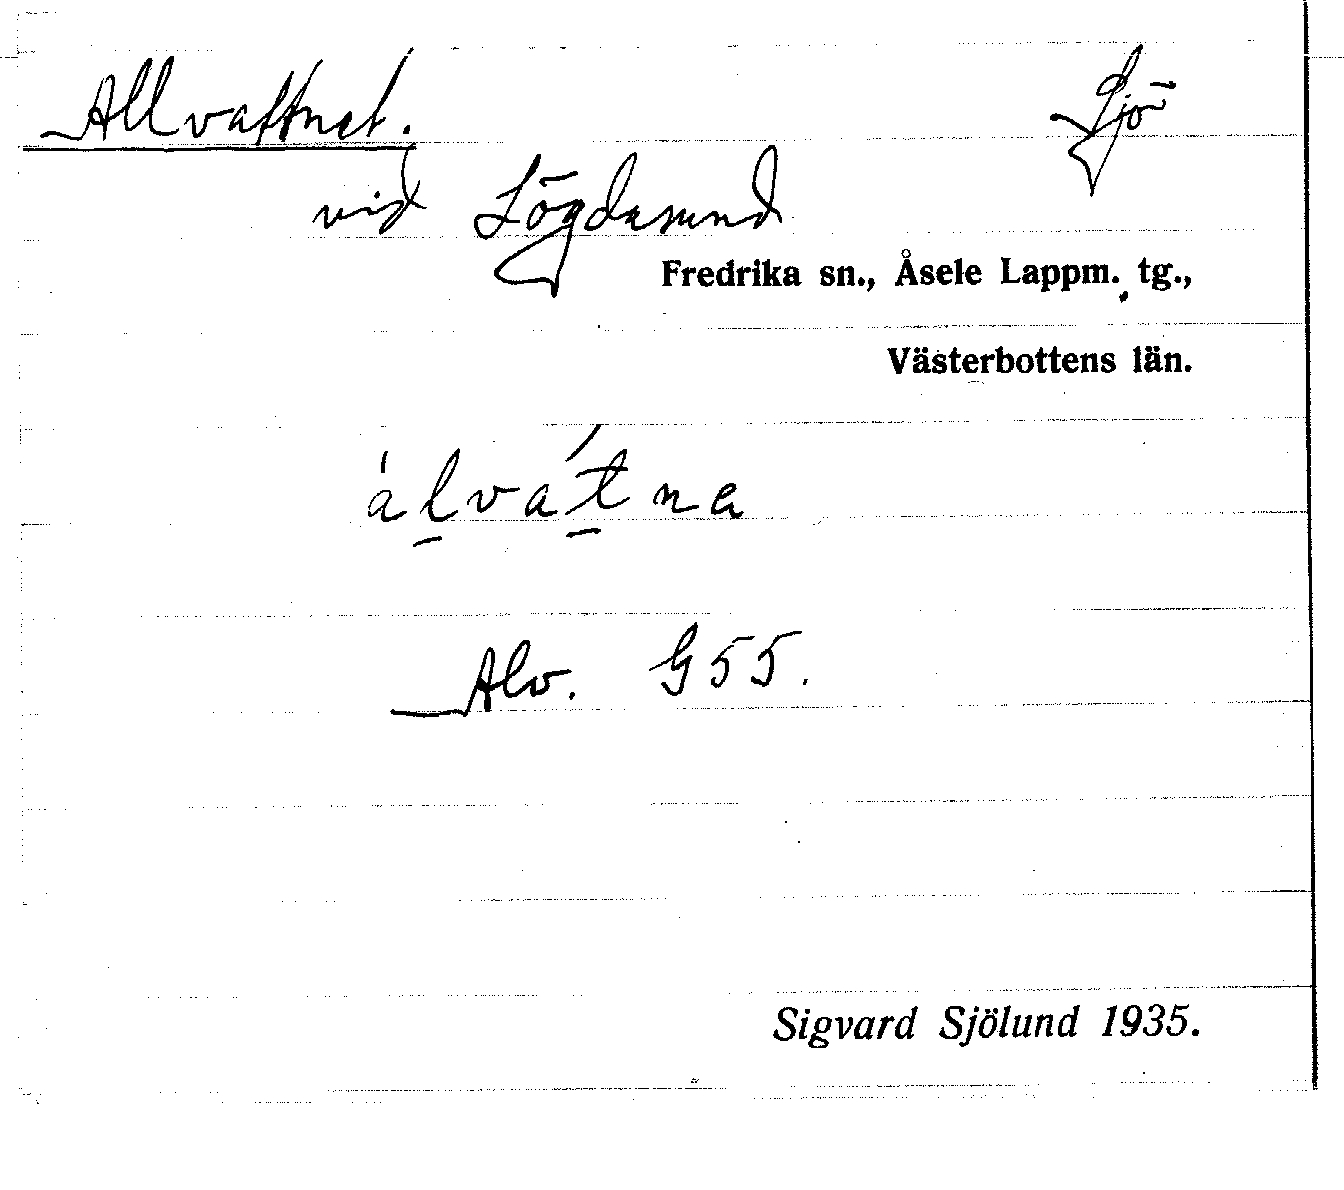 Allvattnet. Sjö
vid Lögdasund
Fredrika sn., Åsele Lappm. tg.,
Västerbottens län.
a̍l̠vat̠́na
Alv. G55.
Sigvard Sjölund 1935.